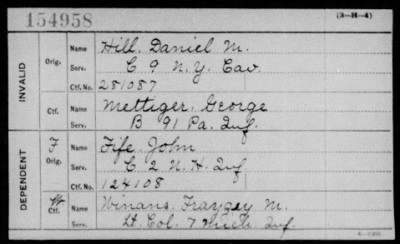 154958
(3-H-4)
INVALID
Orig.
Name Hill, Daniel M.
Serv. C 9 N.Y. Cav.
Ctf. No. 281087
Ctf.
Name Mettiger, George
Serv. B 91 Pa. Inf.
DEPENDENT
F
Orig.
Name Fife, John
Serv. C 2 N.H. Inf
Ctf. No. 124108
Ctf.
Name Winans, M.
Serv. Lt. Col. 7 Mich. Inf.